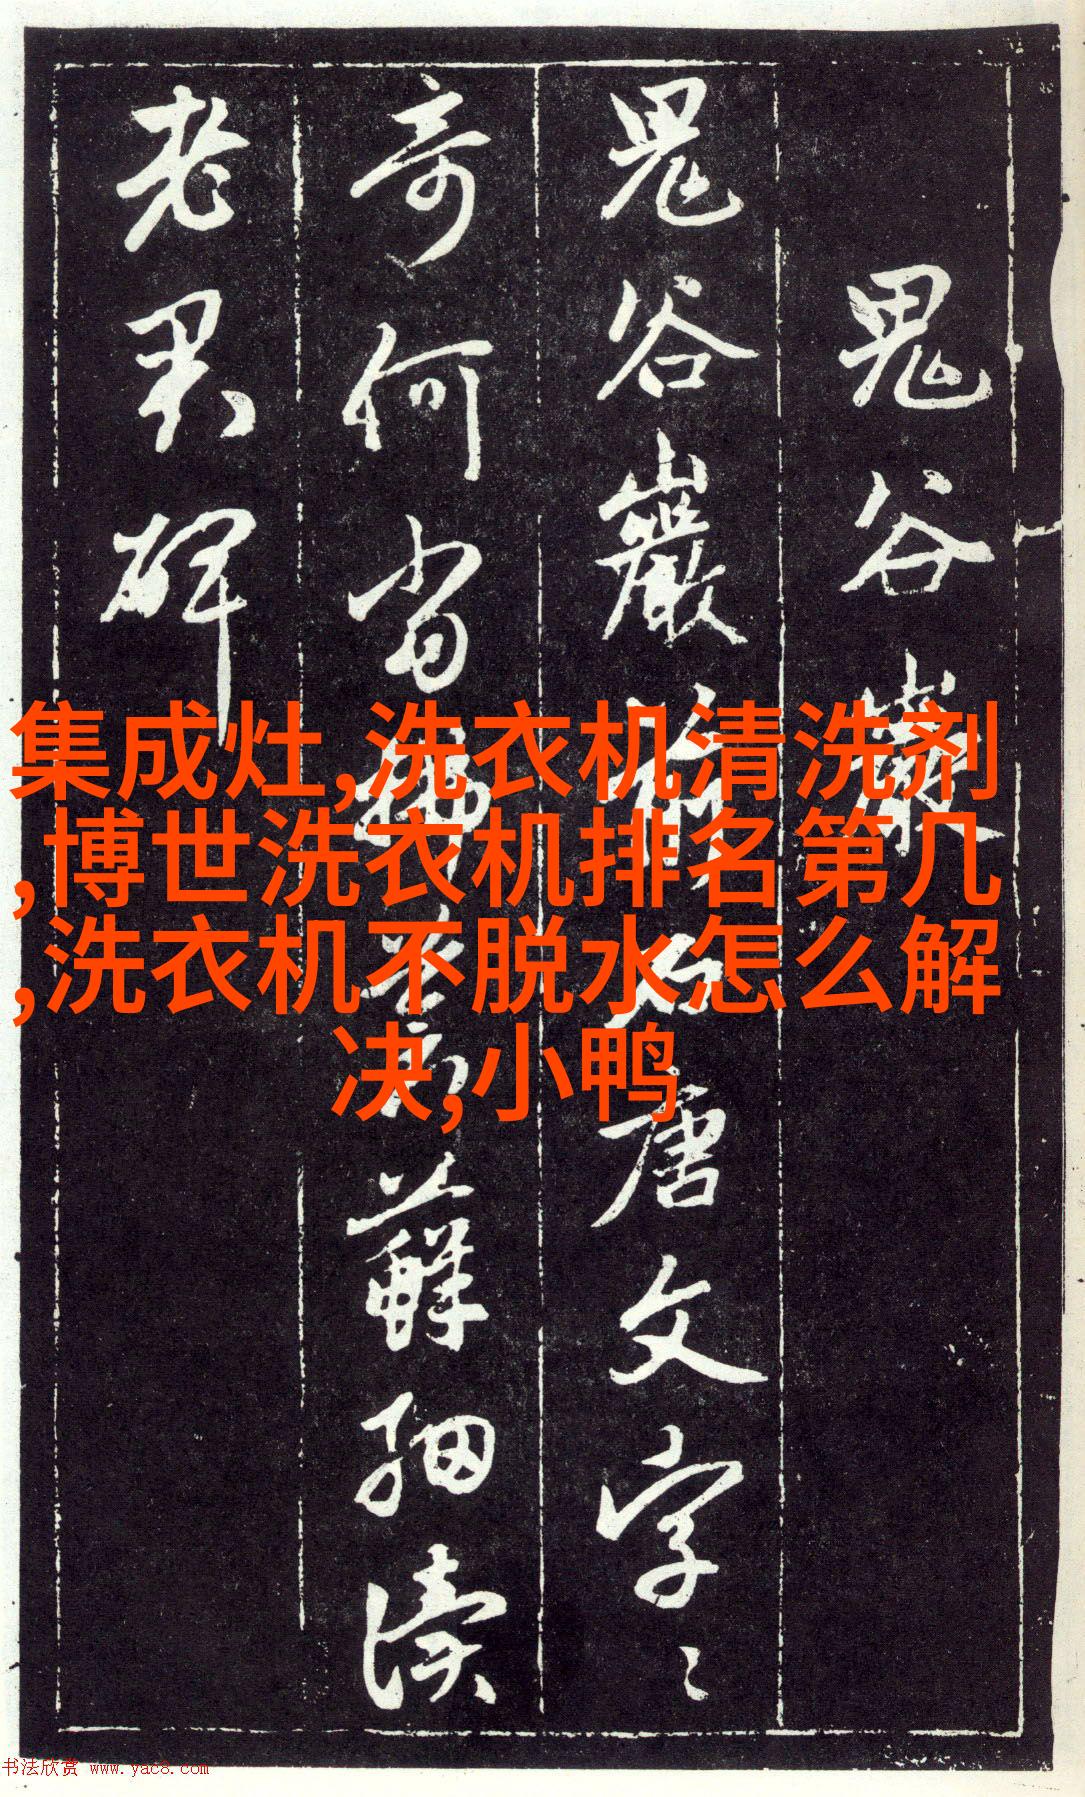 鬼谷巖
鬼谷巖前石唐文字字
奇何當掃蒼蘚細讀
老君碑
集成灶,洗衣机清洗剂
,博世洗衣机排名第几
,洗衣机不脱水怎么解
决,小鸭
书法欣赏 www.yac8.com